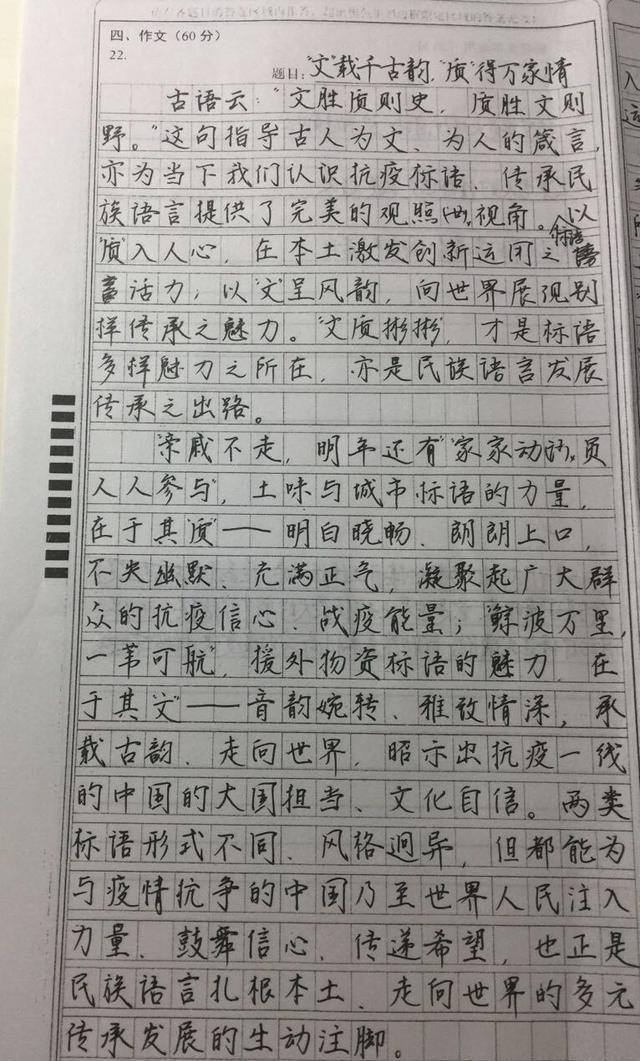 四、作文（60分）
22.
题目："文"载千古韵，"质"得万家情
古语云："文胜质则史，质胜文则
野。"这句指导古人为文、为人的箴言，
亦为当下我们认识抗疫标语、传承民
族语言提供了完美的观照视角。以
"质"入人心，在本土激发创新运用之标语
活力；以"文"呈风韵，向世界展现别
样传承之魅力。"文质彬彬"，才是标语
多样魅力之所在，亦是民族语言发展
传承之出路。
"亲戚不走，明年还有""家家动员，
人人参与"，土味与城市标语的力量，
在于其"质"——明白晓畅、朗朗上口，
不失幽默、充满正气，凝聚起广大群
众的抗疫信心、战疫能量；"鲸波万里，
一苇可航"，援外物资标语的魅力，在
于其"文"——音韵婉转、雅致情深，承
载古韵、走向世界，昭示出抗疫一线
的中国的大国担当、文化自信。两类
标语形式不同、风格迥异，但都能为
与疫情抗争的中国乃至世界人民注入
力量、鼓舞信心、传递希望，也正是
民族语言扎根本土、走向世界的多元
传承发展的生动注脚。